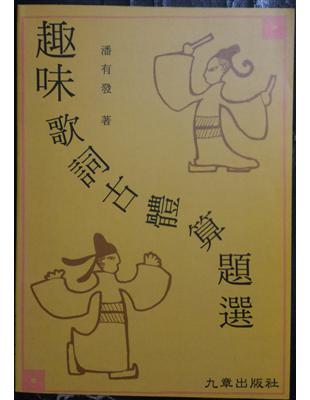 趣味歌詞古體算題選
潘有發 著
九章出版社